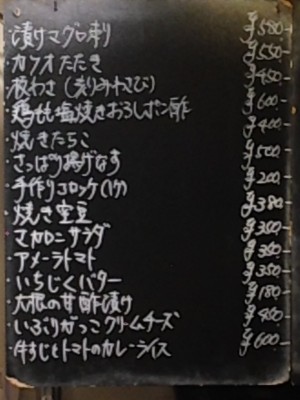 ・漬けマグロ刺 ¥580-
・カツオたたき ¥550-
・板わさ(刻みわさび) ¥450-
・鶏もも塩焼きおろしポン酢 ¥600-
・焼きたらこ ¥400-
・さっぱり揚げなす ¥500-
・手作りコロッケ(1ケ) ¥200-
・焼き空豆 ¥380-
・マカロニサラダ ¥350-
・アメーラトマト ¥350-
・いちじくバター ¥350-
・大根の甘酢漬け ¥180-
・いぶりがっこクリームチーズ ¥450-
・牛すじとトマトのカレーライス ¥600-